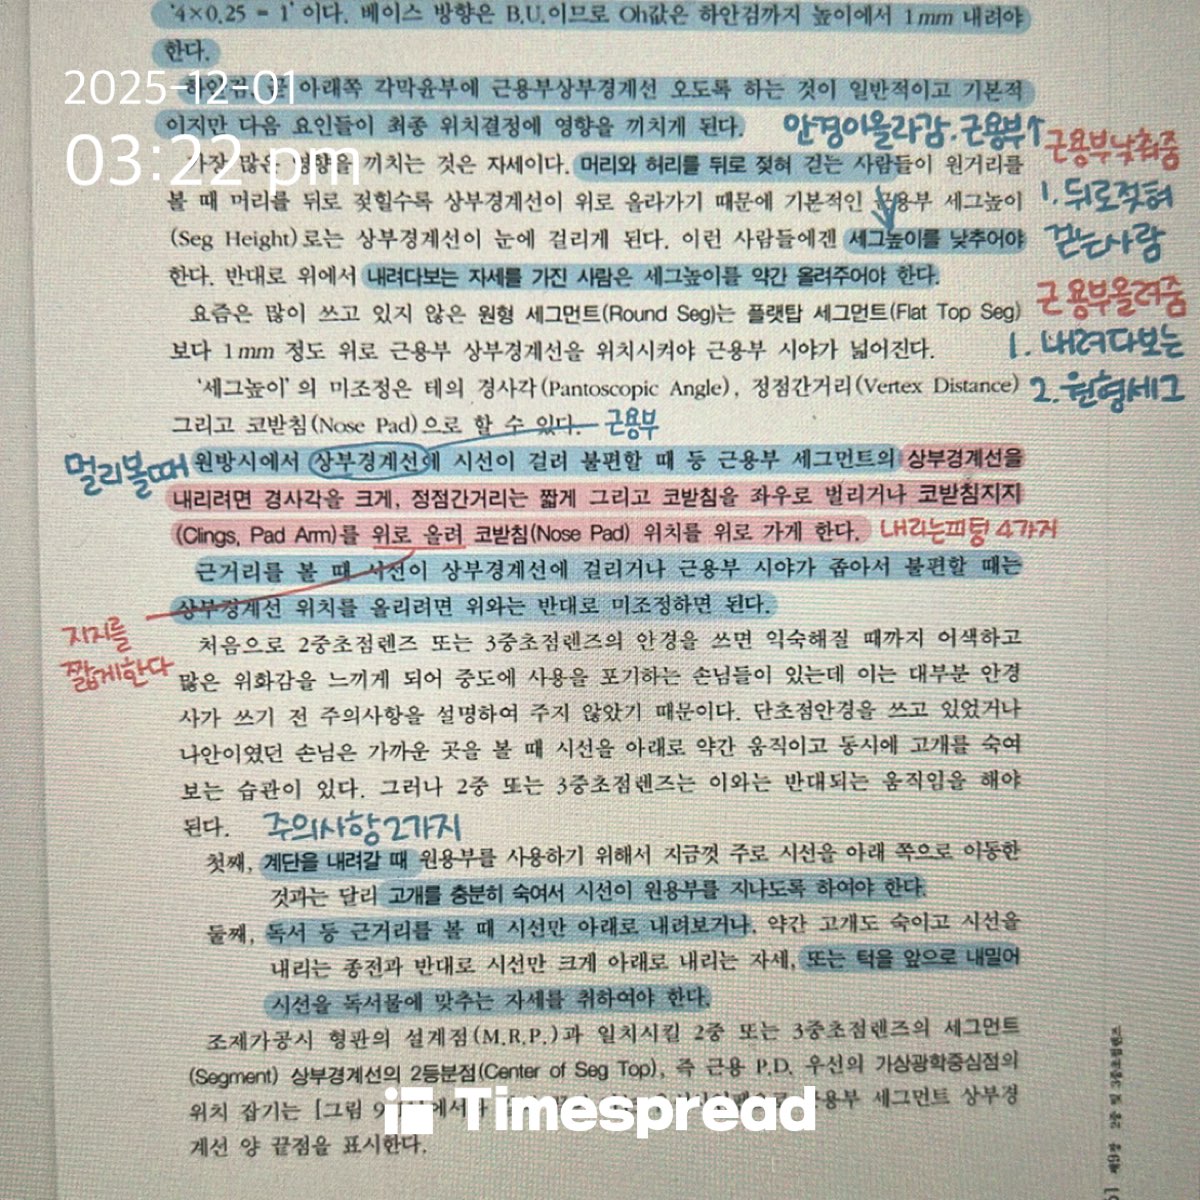 '4×0.25 = 1' 이다. 베이스 방향은 B.U.이므로 Oh값은 하안검까지 높이에서 1mm 내려야
한다.
2025-12-01
아래쪽 각막윤부에 근용부상부경계선 오도록 하는 것이 일반적이고 기본적
이지만 다음 요인들이 최종 위치결정에 영향을 끼치게 된다.
안경이올라감.근용부↑
03:22 pm
가장 많은 영향을 끼치는 것은 자세이다. 머리와 허리를 뒤로 젖혀 걷는 사람들이 원거리를
근용부낮춰줌
볼 때 머리를 뒤로 젖힐수록 상부경계선이 위로 올라가기 때문에 기본적인 근용부 세그높이
1. 뒤로젖혀
(Seg Height)로는 상부경계선이 눈에 걸리게 된다. 이런 사람들에겐 세그높이를 낮추어야
걷는사람
한다. 반대로 위에서 내려다보는 자세를 가진 사람은 세그높이를 약간 올려주어야 한다.
근용부올려줌
요즘은 많이 쓰고 있지 않은 원형 세그먼트(Round Seg)는 플랫탑 세그먼트(Flat Top Seg)
보다 1mm 정도 위로 근용부 상부경계선을 위치시켜야 근용부 시야가 넓어진다.
1. 내려다보는
'세그높이'의 미조정은 테의 경사각(Pantoscopic Angle), 정점간거리(Vertex Distance)
2. 원형세그
그리고 코받침(Nose Pad)으로 할 수 있다.
근용부
멀리볼때
원방시에서 상부경계선에 시선이 걸려 불편할 때 등 근용부 세그먼트의 상부경계선을
내리려면 경사각을 크게, 정점간거리는 짧게 그리고 코받침을 좌우로 벌리거나 코받침지지
(Clings, Pad Arm)를 위로 올려 코받침(Nose Pad) 위치를 위로 가게 한다.
내리는피팅 4가지
근거리를 볼 때 시선이 상부경계선에 걸리거나 근용부 시야가 좁아서 불편할 때는
상부경계선 위치를 올리려면 위와는 반대로 미조정하면 된다.
지지를
짧게한다
처음으로 2중초점렌즈 또는 3중초점렌즈의 안경을 쓰면 익숙해질 때까지 어색하고
많은 위화감을 느끼게 되어 중도에 사용을 포기하는 손님들이 있는데 이는 대부분 안경
사가 쓰기 전 주의사항을 설명하여 주지 않았기 때문이다. 단초점안경을 쓰고 있었거나
나안이였던 손님은 가까운 곳을 볼 때 시선을 아래로 약간 움직이고 동시에 고개를 숙여
보는 습관이 있다. 그러나 2중 또는 3중초점렌즈는 이와는 반대되는 움직임을 해야
된다.
주의사항2가지
첫째, 계단을 내려갈 때 원용부를 사용하기 위해서 지금껏 주로 시선을 아래 쪽으로 이동한
것과는 달리 고개를 충분히 숙여서 시선이 원용부를 지나도록 하여야 한다.
둘째, 독서 등 근거리를 볼 때 시선만 아래로 내려보거나, 약간 고개도 숙이고 시선을
내리는 종전과 반대로 시선만 크게 아래로 내리는 자세, 또는 턱을 앞으로 내밀어
시선을 독서물에 맞추는 자세를 취하여야 한다.
조제가공시 형판의 설계점(M.R.P.)과 일치시킬 2중 또는 3중초점렌즈의 세그먼트
(Segment) 상부경계선의 2등분점(Center of Seg Top), 즉 근용 P.D. 우선의 가상광학중심점의
위치 잡기는 [그림 9 용부 세그먼트 상부경
Timespread
계선 양 끝점을 표시한다.